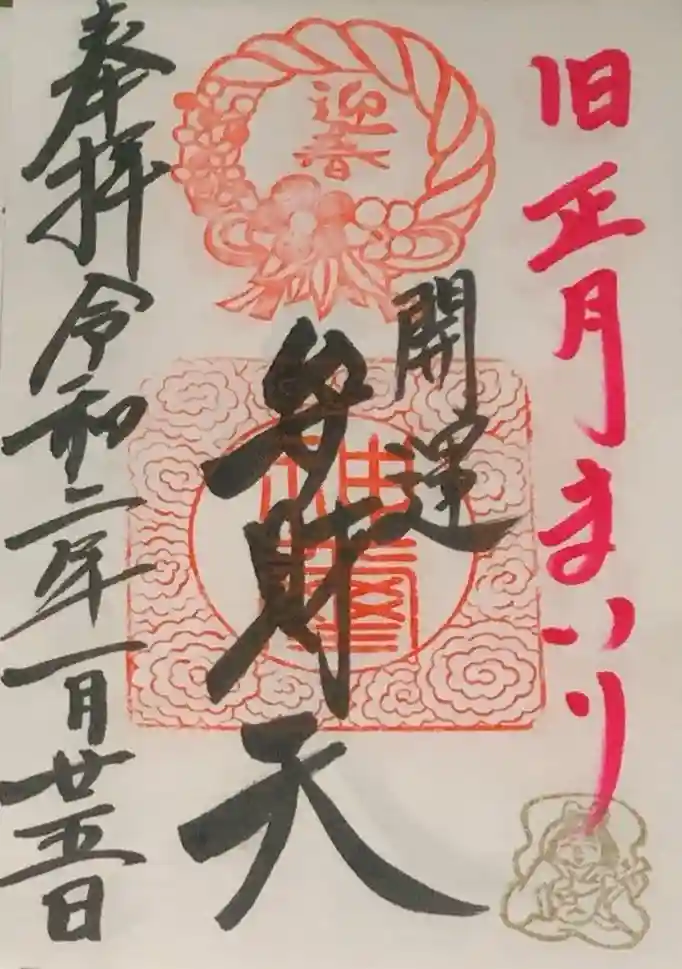 旧正月まいり
開運
弁財天
迎春
奉拝 令和二年一月廿五日